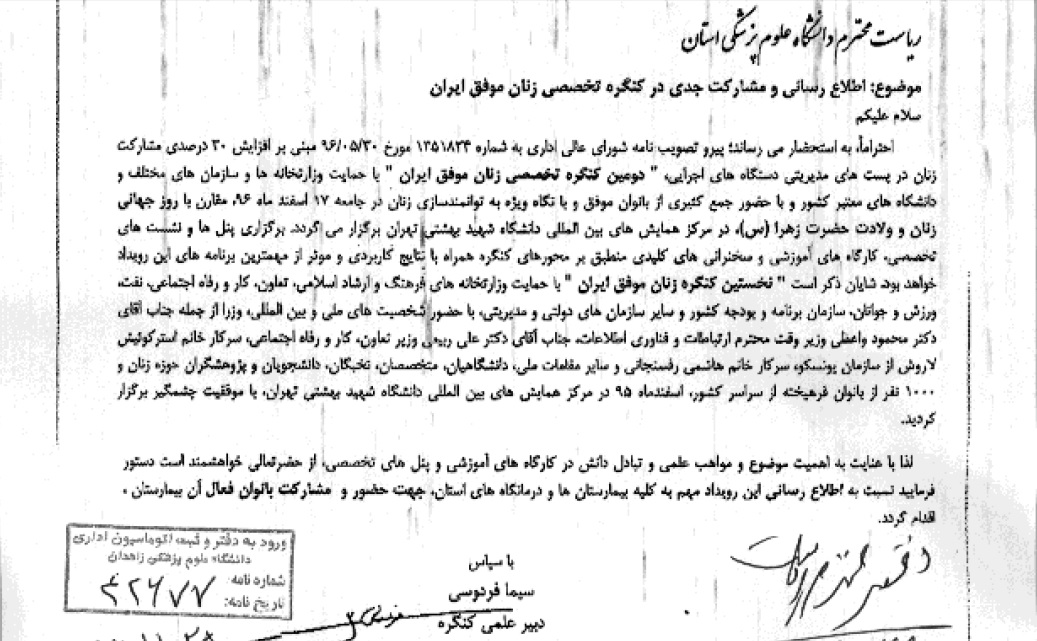 ریاست محترم دانشگاه علوم پزشکی استان
موضوع: اطلاع رسانی و مشارکت جدی در کنگره تخصصی زنان موفق ایران
سلام علیکم
احتراماً، به استحضار می رساند؛ پیرو تصویب نامه شورای عالی اداری به شماره ۱۳۵۱۸۳۴ مورخ ۹۶/۰۵/۳۰ مبنی بر افزایش ۳۰ درصدی مشارکت
زنان در پست های مدیریتی دستگاه های اجرایی، " دومین کنگره تخصصی زنان موفق ایران " با حمایت وزارتخانه ها و سازمان های مختلف و
دانشگاه های معتبر کشور و با حضور جمع کثیری از بانوان موفق و با نگاه ویژه به توانمندسازی زنان در جامعه ۱۷ اسفند ماه ۹۶، مقارن با روز جهانی
زنان و ولادت حضرت زهرا (س)، در مرکز همایش های بین المللی دانشگاه شهید بهشتی تهران برگزار می گردد. برگزاری پنل ها و نشست های
تخصصی، کارگاه های آموزشی و سخنرانی های کلیدی منطبق بر محورهای کنگره همراه با نتایج کاربردی و موثر از مهمترین برنامه های این رویداد
خواهد بود. شایان ذکر است " نخستین کنگره زنان موفق ایران " با حمایت وزارتخانه های فرهنگ و ارشاد اسلامی، تعاون، کار و رفاه اجتماعی، نفت،
ورزش و جوانان، سازمان برنامه و بودجه کشور و سایر سازمان های دولتی و مدیریتی، با حضور شخصیت های ملی و بین المللی، وزرا از جمله جناب آقای
دکتر محمود واعظی وزیر وقت محترم ارتباطات و فناوری اطلاعات، جناب آقای دکتر علی ربیعی وزیر تعاون، کار و رفاه اجتماعی، سرکار خانم استرکوئیش
لاروش از سازمان یونسکو، سرکار خانم هاشمی رفسنجانی و سایر مقامات ملی، دانشگاهیان، متخصصان، نخبگان، دانشجویان و پژوهشگران حوزه زنان و
۱۰۰۰ نفر از بانوان فرهیخته از سراسر کشور، اسفندماه ۹۵ در مرکز همایش های بین المللی دانشگاه شهید بهشتی تهران، با موفقیت چشمگیر برگزار
گردید.
لذا با عنایت به اهمیت موضوع و مواهب علمی و تبادل دانش در کارگاه های آموزشی و پنل های تخصصی، از حضرتعالی خواهشمند است دستور
فرمایید نسبت به اطلاع رسانی این رویداد مهم به کلیه بیمارستان ها و درمانگاه های استان، جهت حضور و مشارکت بانوان فعال آن بیمارستان ،
اقدام گردد.
با سپاس
سیما فردوسی
دبیر علمی کنگره
ورود به دفتر و ثبت اتوماسیون اداری
دانشگاه علوم پزشکی زاهدان
شماره نامه: ۴۲۶۷۷
تاریخ نامه:
دفتر محترم ریاست